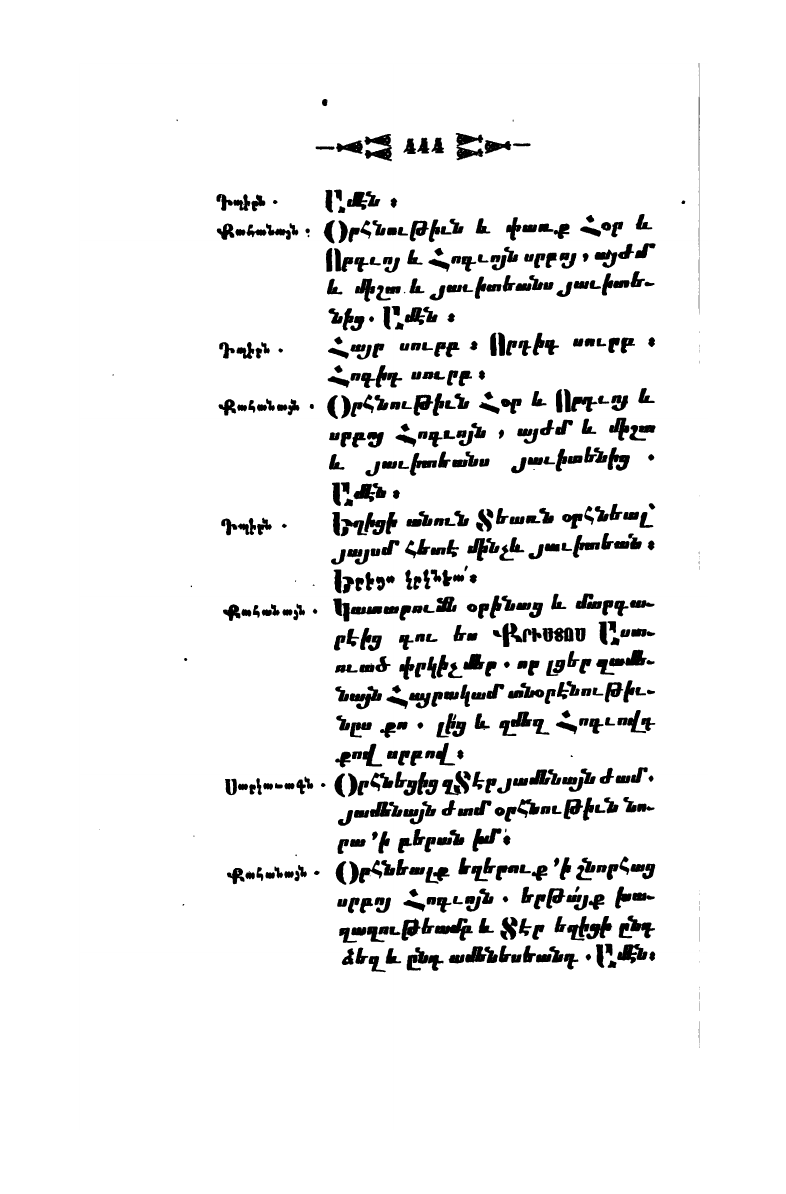 444
Դպիրն. Ամէն։
Քահանայն. Օրհնութիւն և փառք Հօր և
Որդւոյ և Հոգւոյն սրբոյ, այժմ
և միշտ և յաւիտեանս յաւիտե-
նից. Ամէն։
Դպիրն. Հայր սուրբ։ Որդիդ սուրբ։
Հոգիդ սուրբ։
Քահանայն. Օրհնութիւն Հօր և Որդւոյ և
սրբոյ Հոգւոյն, այժմ և միշտ
և յաւիտեանս յաւիտենից.
Ամէն։
Դպիրն. Եղիցի անուն Տեառն օրհնեալ՝
յայսմ հետէ մինչև յաւիտեան։
Երիցս կրկնէա՛։
Քահանայն. Կատարումն օրինաց և մարգա-
րէից դու ես ՔՐԻՍՏՈՍ Աստ-
ուած փրկիչ մեր. որ լցեր զամե-
նայն Հայրակամ տնօրէնութիւ-
նըս քո. լի՛ց և զմեզ Հոգւովդ
քով սրբով։
Սարկաւագն. Օրհնեցից զՏէր յամենայն ժամ.
յամենայն ժամ օրհնութիւն նո-
րա ՚ի բերան իմ։
Քահանայն. Օրհնեալք եղերուք ՚ի շնորհաց
սրբոյ Հոգւոյն. երթա՛յք խա-
ղաղութեամբ և Տէր եղիցի ընդ
ձեզ և ընդ ամենեսեանդ. Ամէն։